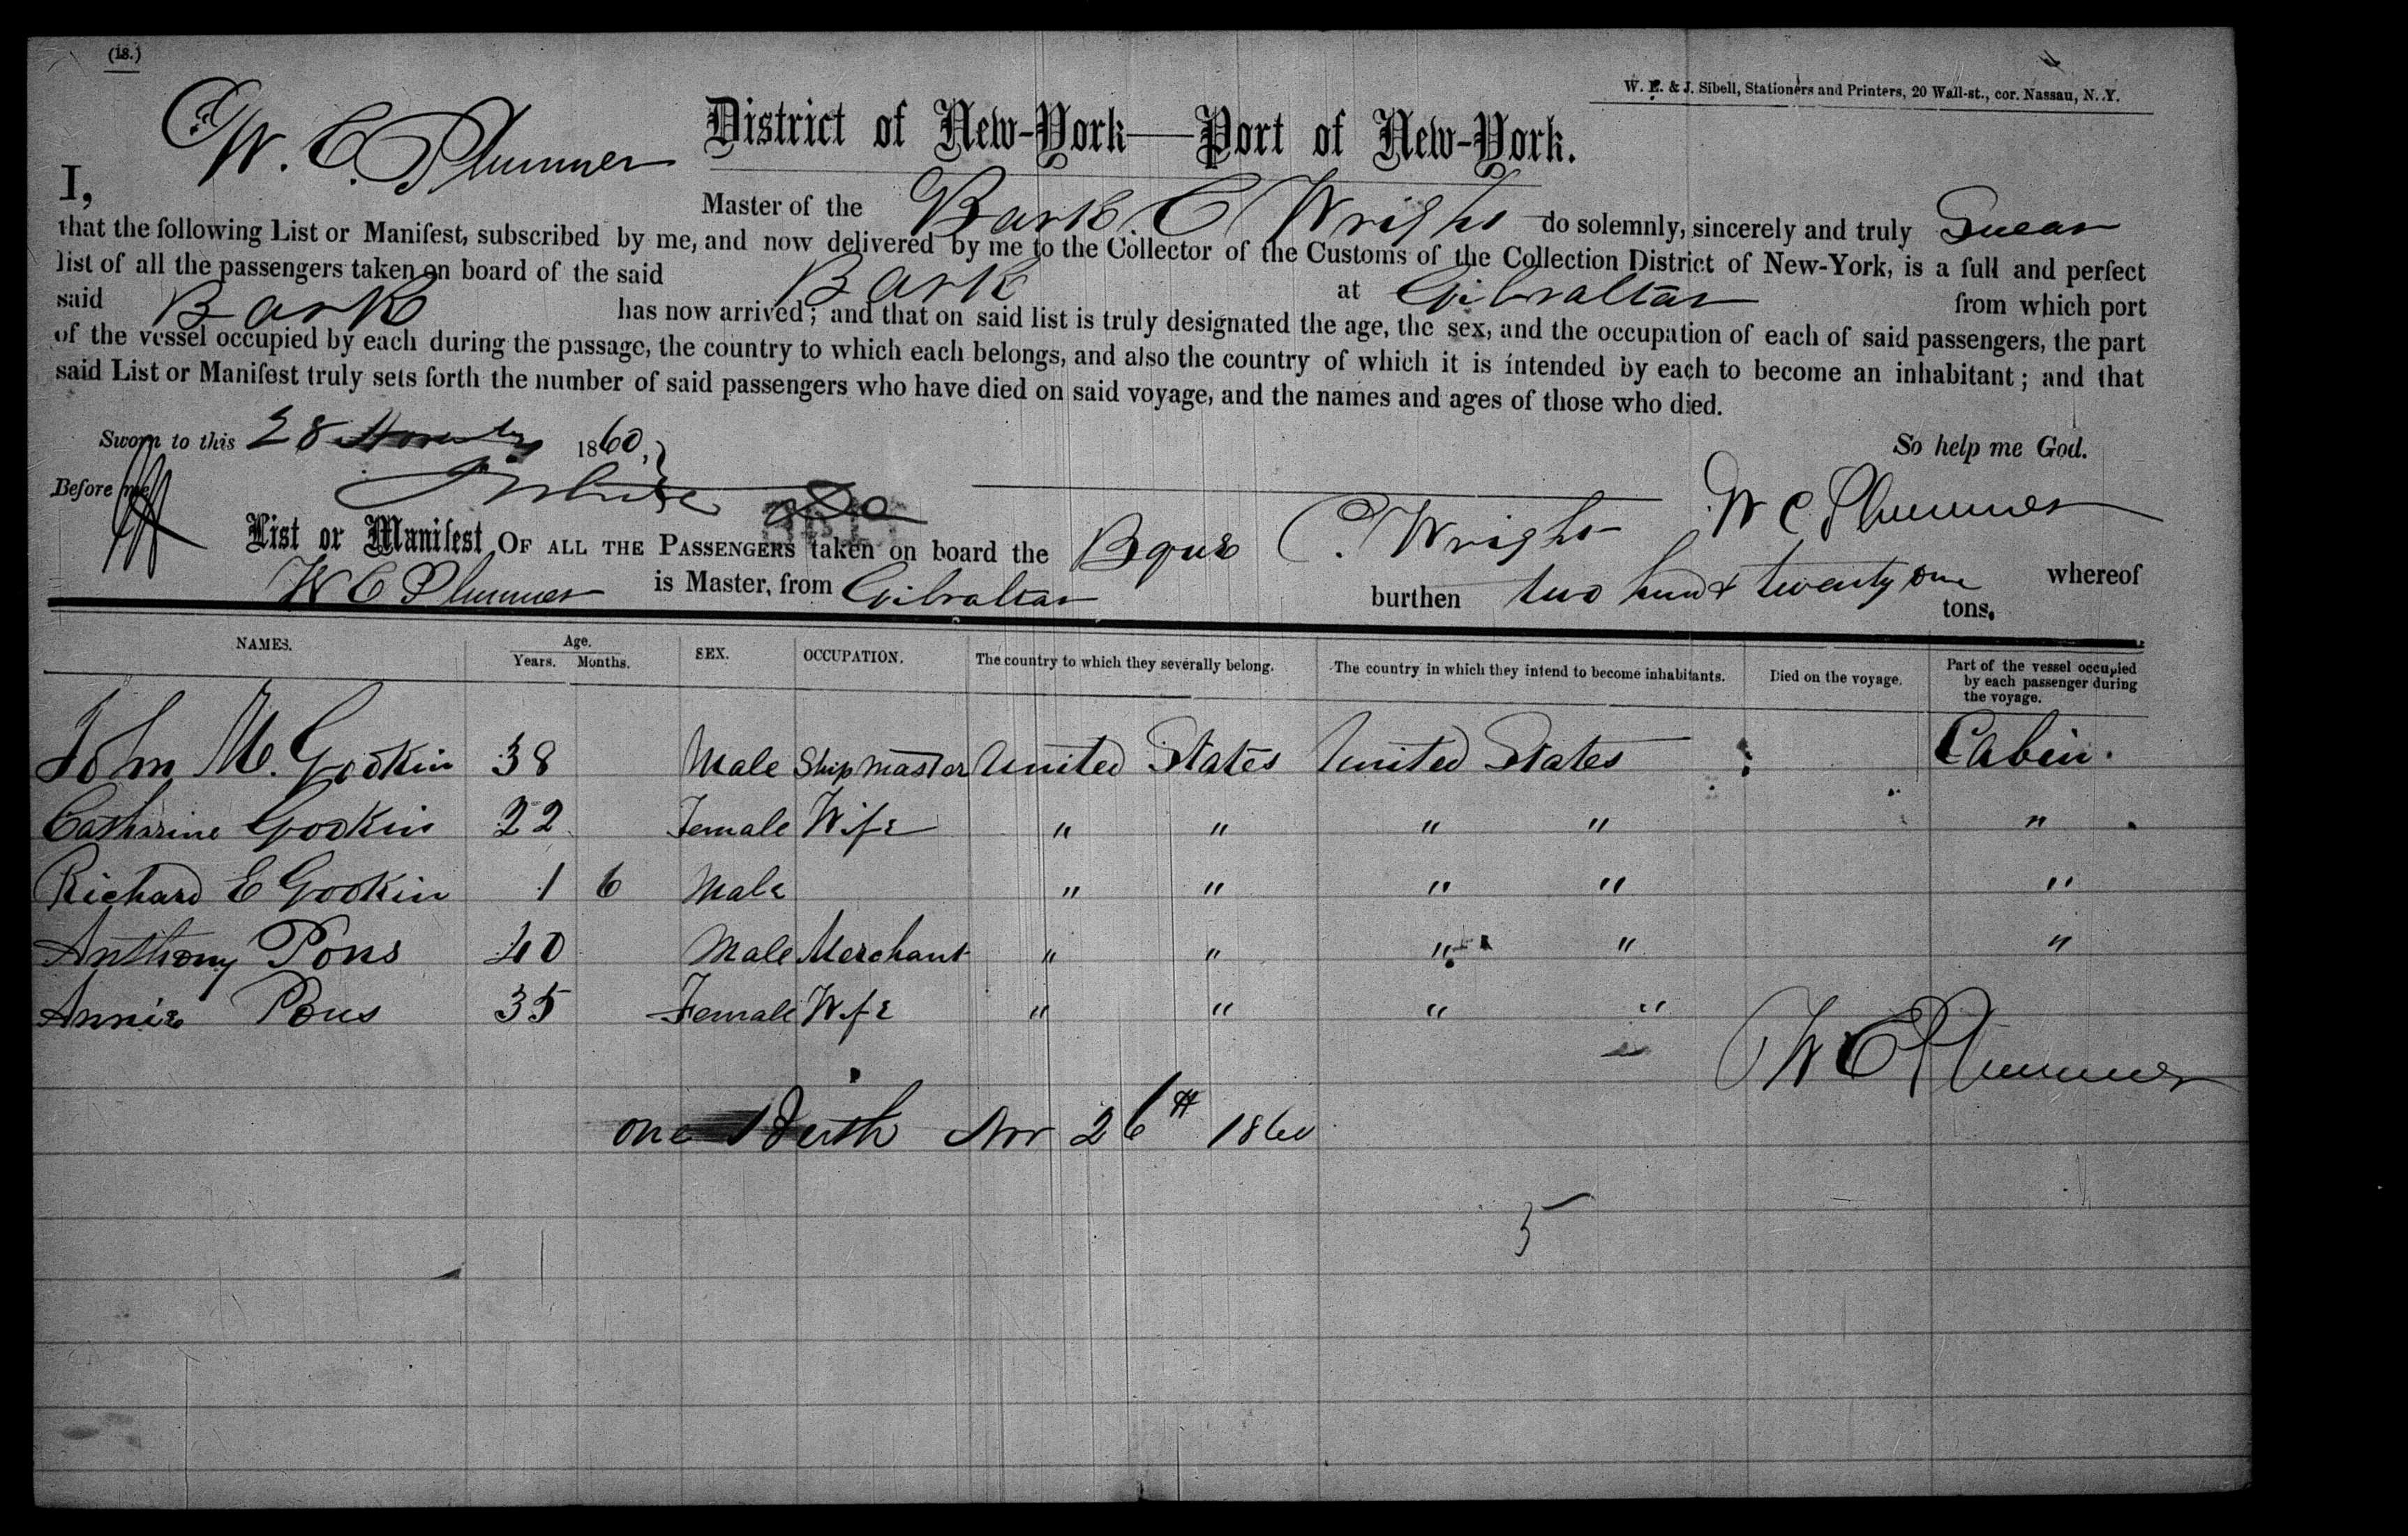 (18.)
W. E. & J. Sibell, Stationers and Printers, 20 Wall-st., cor. Nassau, N. Y.
District of New-York—Port of New-York.
I, W. C. Plummer Master of the Bark C Wright do solemnly, sincerely and truly Swear
that the following List or Manifest, subscribed by me, and now delivered by me to the Collector of the Customs of the Collection District of New-York, is a full and perfect
list of all the passengers taken on board of the said Bark at Gibraltar from which port
said Bark has now arrived; and that on said list is truly designated the age, the sex, and the occupation of each of said passengers, the part
of the vessel occupied by each during the passage, the country to which each belongs, and also the country of which it is intended by each to become an inhabitant; and that
said List or Manifest truly sets forth the number of said passengers who have died on said voyage, and the names and ages of those who died.
Sworn to this 28 1860, So help me God.
Before me W C Plummer
List or Manifest OF ALL THE PASSENGERS taken on board the Bque C. Wright whereof
W C Plummer is Master, from Gibraltar burthen two hund & twenty one tons.
NAMES. Age. Years. Months. SEX. OCCUPATION. The country to which they severally belong. The country in which they intend to become inhabitants. Died on the voyage. Part of the vessel occupied by each passenger during the voyage.
John M. Gookin 38 Male Ship master United States United States Cabin.
Catharine Gookin 22 Female Wife " " " " "
Richard E Gookin 1 6 Male " " " " "
Anthony Pons 40 Male Merchant " " " " "
Annie Pons 35 Female Wife " " " "
W C Plummer
one Birth Nov 26th 1860
5